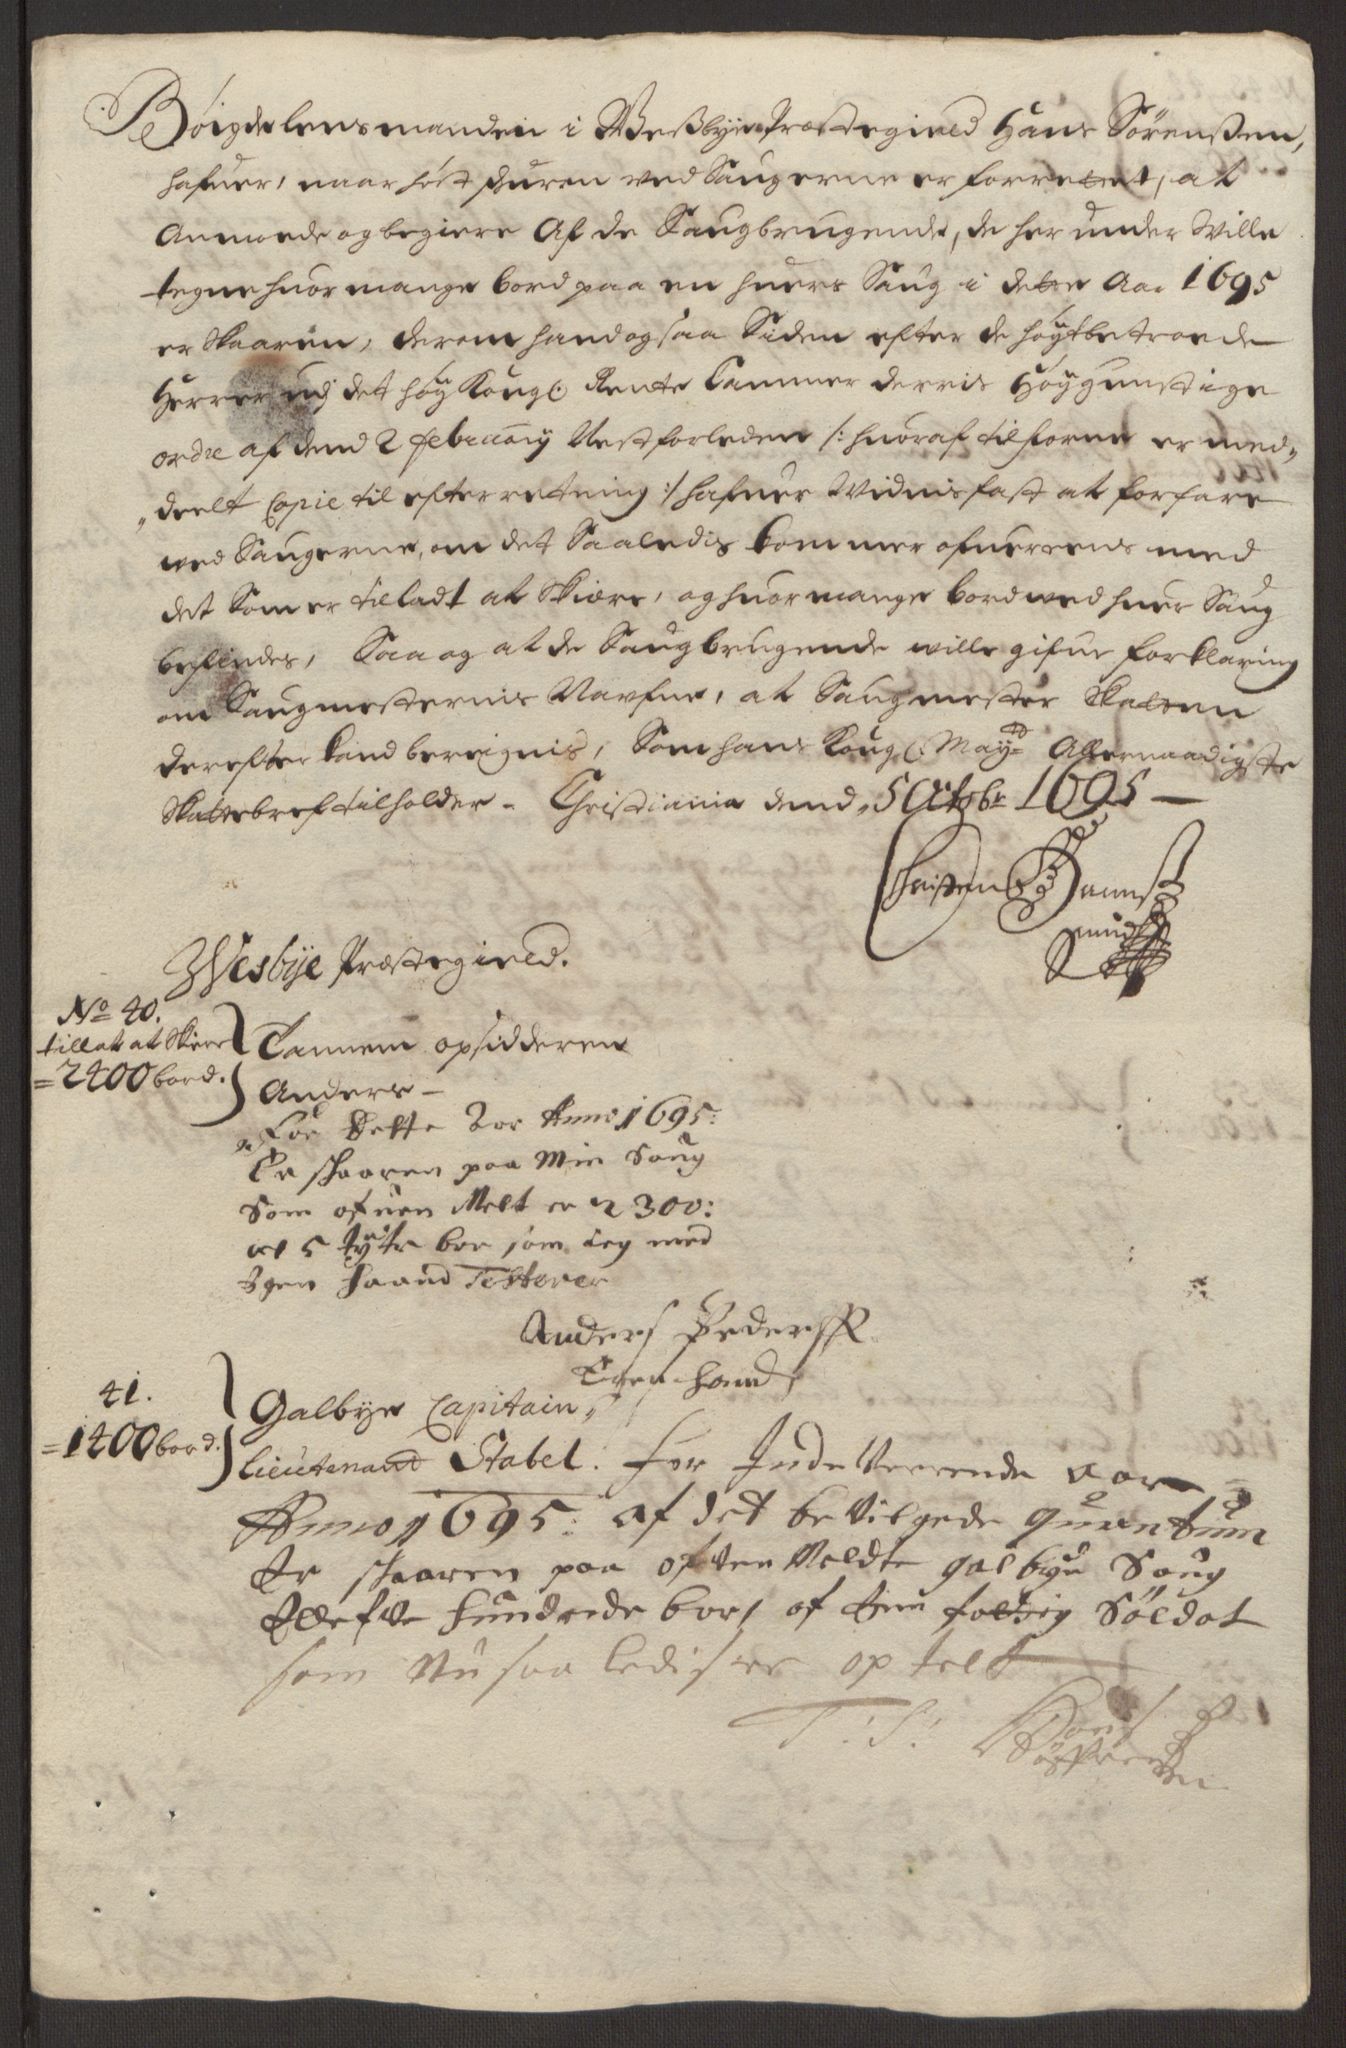 Böigdelensmanden i Weßbye Præstegield Hans Sörenßen,
hafuer, naar höst Skuren ved Saugerne er forrettet, at
Anmode og begiere Af de Saugbrugende, de her under Wille
tegne huor mange bord paa en huers Saug i dette Aar 1695
er Skaaren, derom hand ogsaa Siden efter de höÿtbetroede
Herrer udj det höÿ Kongl: Rente Cammer derris Höÿgunstige
ordre af dend 2 februarij Nestforleden /: huoraf tilforne er med„
„deelt Copie til efterretning :/ hafuer Widnisfast at forfare
ved Saugerne, om det Saaledis kommer ofuereens med
det Som er tilladt at Skiære, og huor mange bord ved huer Saug
befindes, Saa og at de Saugbrugende wille gifue forklaring
om Saugmesternis Nafne, at Saugmester Skatten
derefter kand beregnis, Som hans Kongl: Maÿts Allernaadigste
Skattebref tilholder - Christiania dend 5 Octobr 1695 —
Christen
Wesbÿe Præstegield.
No 40.
tillat at Skiere
=2400 bord.
Tannem opsidderen
Anders -
For Dette Aar Anno 1695:
Er skaaren paa Min Saug
Som ofuen Melt er 2300:
bor som ieg med
Egen haand Testerer
Anders Pederss
Egen haand
41.
=1400 bord.
Galbye Capitain„
lieutenant Stabel: For Inde Verrende aar
Anno 1695: af det beVilgede quantum
Er skaaren paa ofuen Meldte galbye Saug
Ellefve hundrede bort af
som Nu saaledis er optelt
T: S: Hans
Söffrenssen